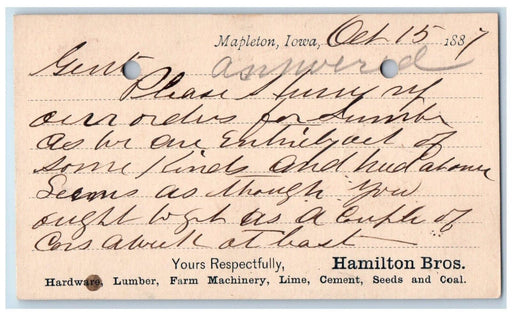 Mapleton, Iowa, Oct 15 1887
Gents answered
Please Hurry up
our orders for Lumber
as we are Entirely out of
some Kinds and need at once
Seems as though You
ought to get us a Couple of
Cars a week at least
Yours Respectfully, Hamilton Bros.
Hardware, Lumber, Farm Machinery, Lime, Cement, Seeds and Coal.